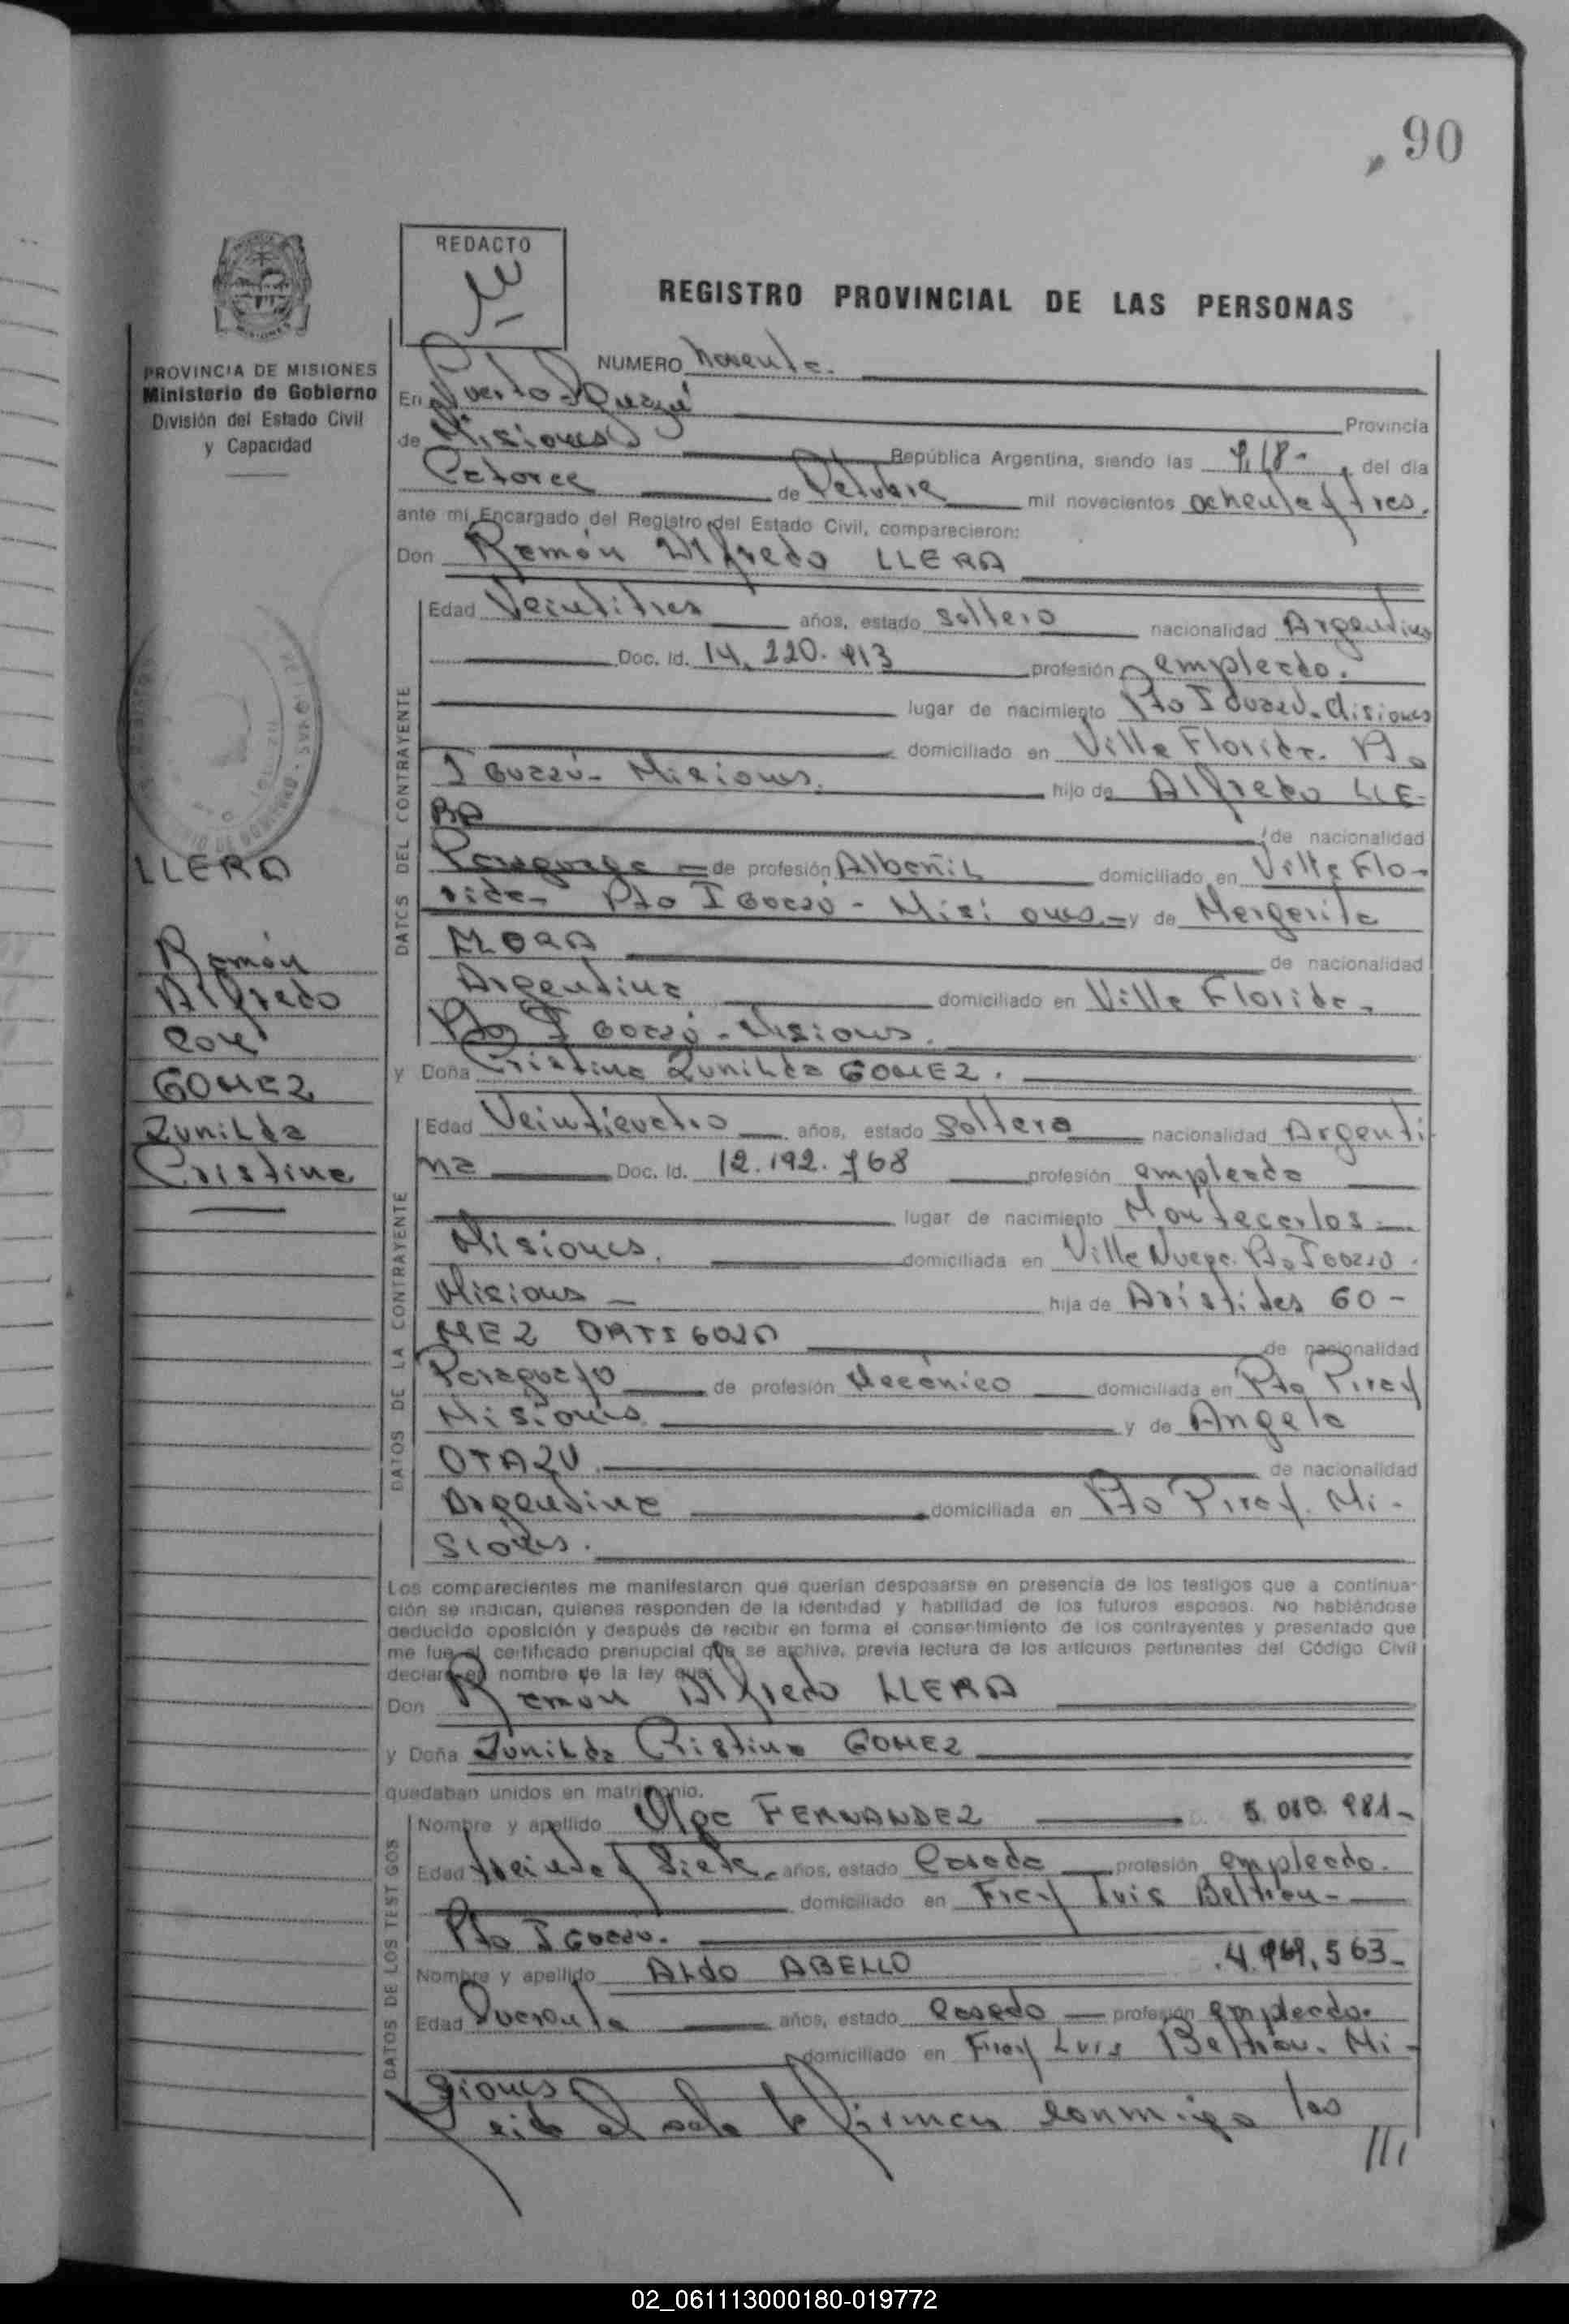 90
REDACTO
REGISTRO PROVINCIAL DE LAS PERSONAS
PROVINCIA DE MISIONES
Ministerio de Gobierno
División del Estado Civil
y Capacidad
NUMERO Noventa.
En Puerto Iguazú
Provincia
de Misiones República Argentina, siendo las del día
Catorce de Octubre mil novecientos ochenta y tres.
ante mi, Encargado del Registro del Estado Civil, comparecieron:
Don Ramón Alfredo LLERA
DATOS DEL CONTRAYENTE
Edad Veintitres años, estado soltero nacionalidad Argentino
Doc. Id. 14.220.413 profesión empleado.
lugar de nacimiento Pto Iguazú. Misiones
domiciliado en Villa Florida. Pto
Iguazú - Misiones. hijo de Alfredo LLE-
RA
de nacionalidad
Paraguaya de profesión Albañil domiciliado en Villa Flo-
rida. Pto Iguazú - Misiones.- y de Margarita
MORA de nacionalidad
Argentina domiciliado en Villa Florida.
Pto Iguazú - Misiones.
y Doña Cristina Zunilda GOMEZ.
LLERA
Ramón
Alfredo
con
GOMEZ
Zunilda
Cristina
DATOS DE LA CONTRAYENTE
Edad Veinticuatro años, estado Soltera nacionalidad Argenti
na Doc. Id. 12.192.768 profesión empleada
lugar de nacimiento Montecarlos
Misiones. domiciliada en Villa Nueva. Pto Iguazú.
Misiones - hija de Arístides GO-
MEZ ORTIGOZA de nacionalidad
Paraguayo de profesión Mecánico domiciliada en Pto Piray
Misiones. y de Angela
OTAZU. de nacionalidad
Argentina domiciliada en Pto Piray. Mi-
siones.
Los comparecientes me manifestaron que querían desposarse en presencia de los testigos que a continua-
ción se indican, quienes responden de la identidad y habilidad de los futuros esposos. No habiéndose
deducido oposición y después de recibir en forma el consentimiento de los contrayentes y presentado que
me fue el certificado prenupcial que se archiva, previa lectura de los artículos pertinentes del Código Civil
declaro en nombre de la ley que:
Don Ramón Alfredo LLERA
y Doña Zunilda Cristina GOMEZ
quedaban unidos en matrimonio.
DATOS DE LOS TESTIGOS
Nombre y apellido Olga FERNANDEZ 5.010.981-
Edad treinta y siete. años, estado Casada profesión empleado.
domiciliado en Fray Luis Beltran-
Pto Iguazú.
Nombre y apellido Aldo ABELLO 4.969.563-
Edad Cuarenta años, estado Casado profesión empleado.
domiciliado en Fray Luis Beltran. Mi-
siones
Leida el acta la firman conmigo los
///
02_061113000180-019772